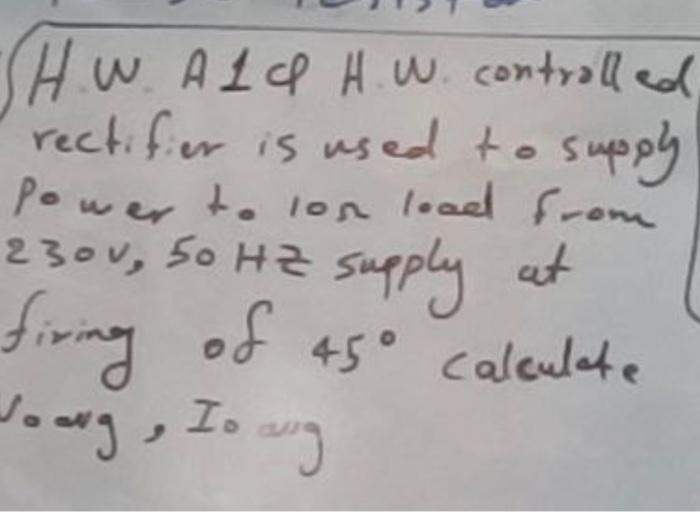 H.W. A 1φ H.W. controlled
rectifier is used to supply
Power to 10Ω load from
230V, 50 HZ supply at
firing of 45° calculate
Vo avg, Io avg